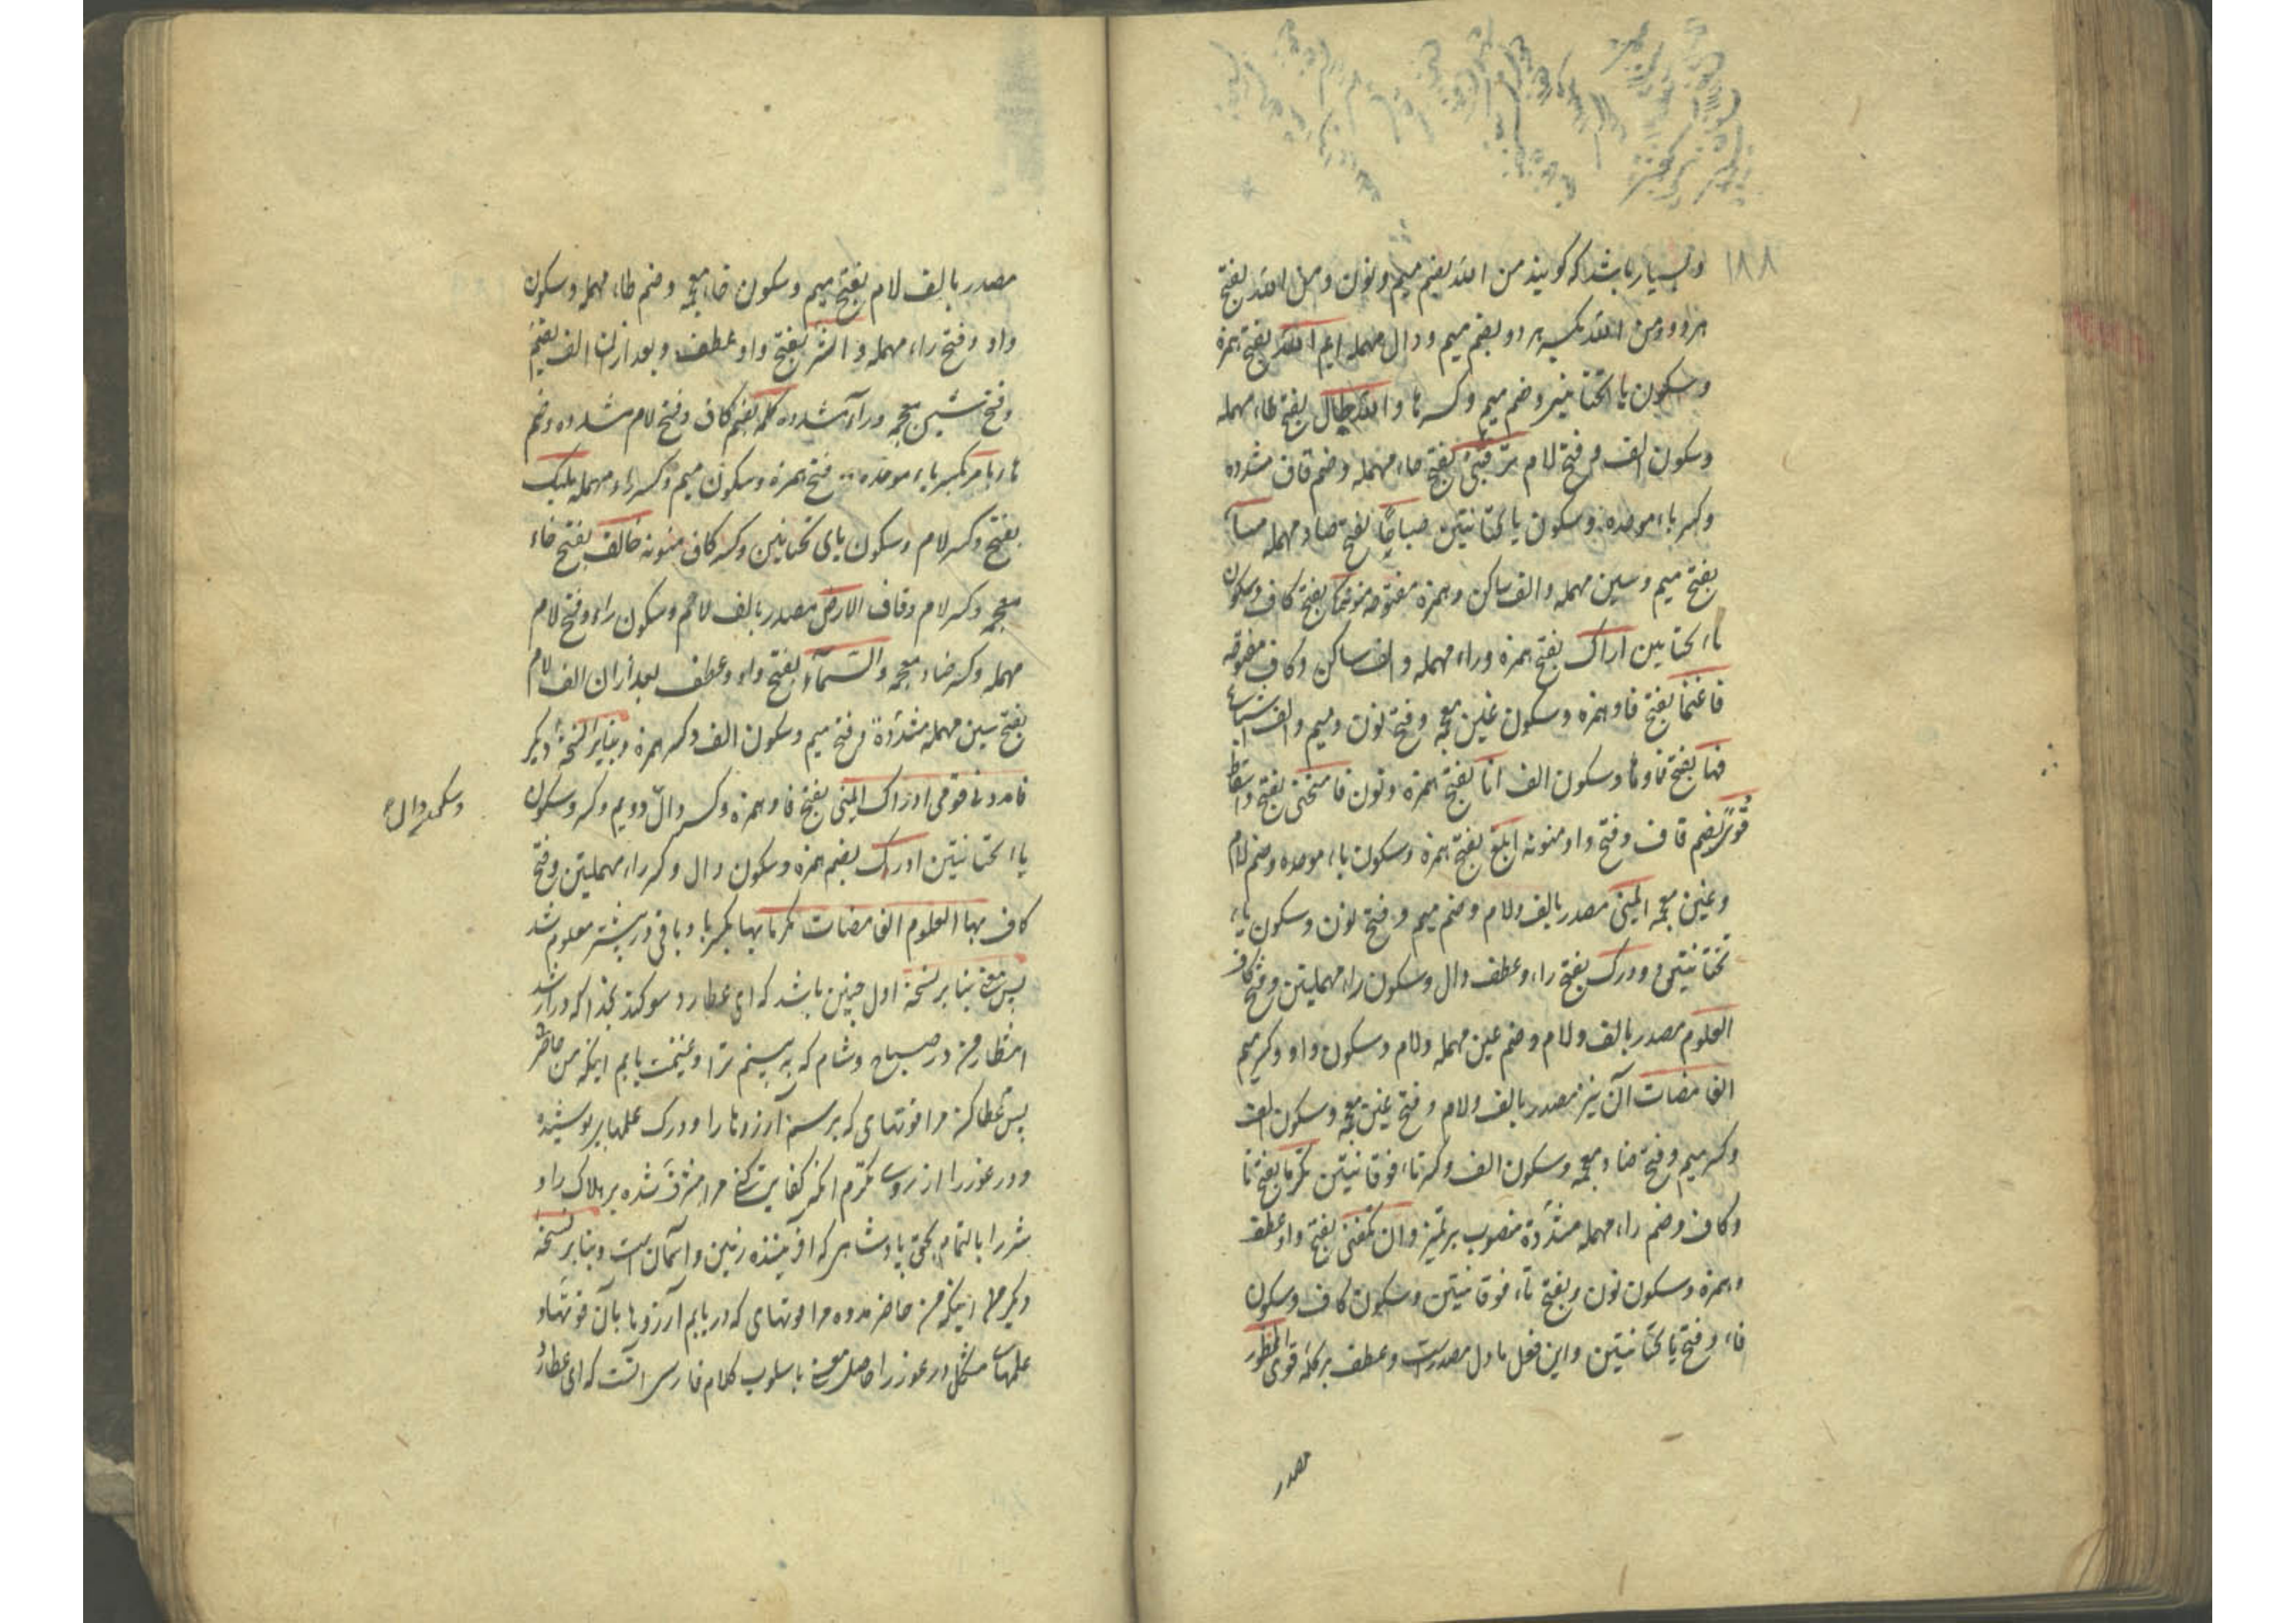 ۱۸۸
وبسیار باشد که کویند من الله بضم میم ونون ومن الله بفتح
هردو ومن الله بکسر هردو بضم میم ودال مهمله ایم الله بفتح همزه
وسکون یاا تحتانیتین وضم میم وکسر ها والله طال بفتح طاء مهمله
وسکون الف وفتح لام ترقبی بفتح تاء مهمله وضم قاف مشدده
وکسر باء موحده وسکون یا تحتانیتین صباحا بفتح صاد مهمله مساء
بفتح میم وسین مهمله والف ساکن وهمزه مفتوحه منونه کی بفتح کاف وسکون
یاا تحتانیین اراک بفتح همزه وراء مهمله والف ساکن وکاف مفتوحه
فاغنما بفتح فا وهمزه وسکون غین معجمه وفتح نون ومیم والف اشباع
فها بفتح فا وها وسکون الف انا بفتح همزه ونون فامنحنی بفتح
قوی بضم قاف وفتح واو منونه ابلغ بفتح همزه وسکون باء موحده وضم لام
وغین معجمه المنی مصدر بالف ولام وضم میم وفتح نون وسکون یاء
تحتانیتین ودرک بفتح راء وعطف دال وسکون راء مهملیتن وفتح کاف
العلوم مصدر بالف ولام وضم عین مهمله ولام وسکون واو وکسر میم
الغامضات آن نیز مصدر بالف ولام وفتح غین معجمه وسکون الف
وکسر میم وفتح ضاد معجمه وسکون الف وکسر تاء فوقانیتین تکرما بفتح تا
وکاف وضم راء مهمله مشددة منصوب بر تمیز وان تکفنی بفتح واو عطف
وهمزه وسکون نون وبفتح تاء فوقانیتین وسکون کاف وسکون
فاء وفتح یا تحتانیتین واین فعل ماول مصدرست وعطف بر کلمه قوی المحظور
مصدر
مصدر بالف لام بفتح میم وسکون خاء معجمه وضم طاء مهمله وسکون
واو وفتح راء مهمله والشر بفتح واو عطف وبعد ازان الف بضم
وفتح شین معجمه وراء مشدده کله بضم کاف وفتح لام مشدده وضم
ها بامر بکسر باء موحده وفتح همزه وسکون میم وکسر راء مهمله ملیک
بفتح وکسر لام وسکون یای تحتانیتین وکسر کاف منونه خالق بفتح خاء
معجمه وکسر لام وقاف الارض مصدر بالف لام وسکون راء وفتح لام
مهمله وکسر ضاد معجمه والسماء بفتح واو وعطف بعد ازان الف لام
بفتح سین مهمله مشددة وفتح میم وسکون الف وکسر همزه وبنابر نسخهٔ دیکر
فامددنی قوی ادراک المنی بفتح فا وهمزه وکسر دال دویم وکسر وسکون
وسکون دال
یاا تحتانیتین ادرک بضم همزه وسکون دال وکسر راء مهملیتن وفتح
کاف بها العلوم الغامضات تکرما بها بکسر با وباقی در پیشتر معلوم شد
پس معنی بنا بر نسخهٔ اول چنین باشد که ای عطارد سوکند بخدا که دراز شد
انتظار من در صباح وشام که به بینم ترا وغنیمت یابم اینکه من حاضر
پس عطا کن مرا قوتهای که برسم آرزوها را ودرک علمهای پوشیده
ودر غور را از روی تکرم انکه کفایت کنی مرا مشرف شده بر هلاک را و
شر را بالتمام بحق پادشاهی که افریننده زمین واسمان است وبنا بر نسخه
دیکر اینکه من حاضر مدد ده مرا قوتهای که دریابم آرزوها بآن قوتها و
علمهای مشکل در غور را حاصل معنی باسلوب کلام فارسی انست که ای عطارد